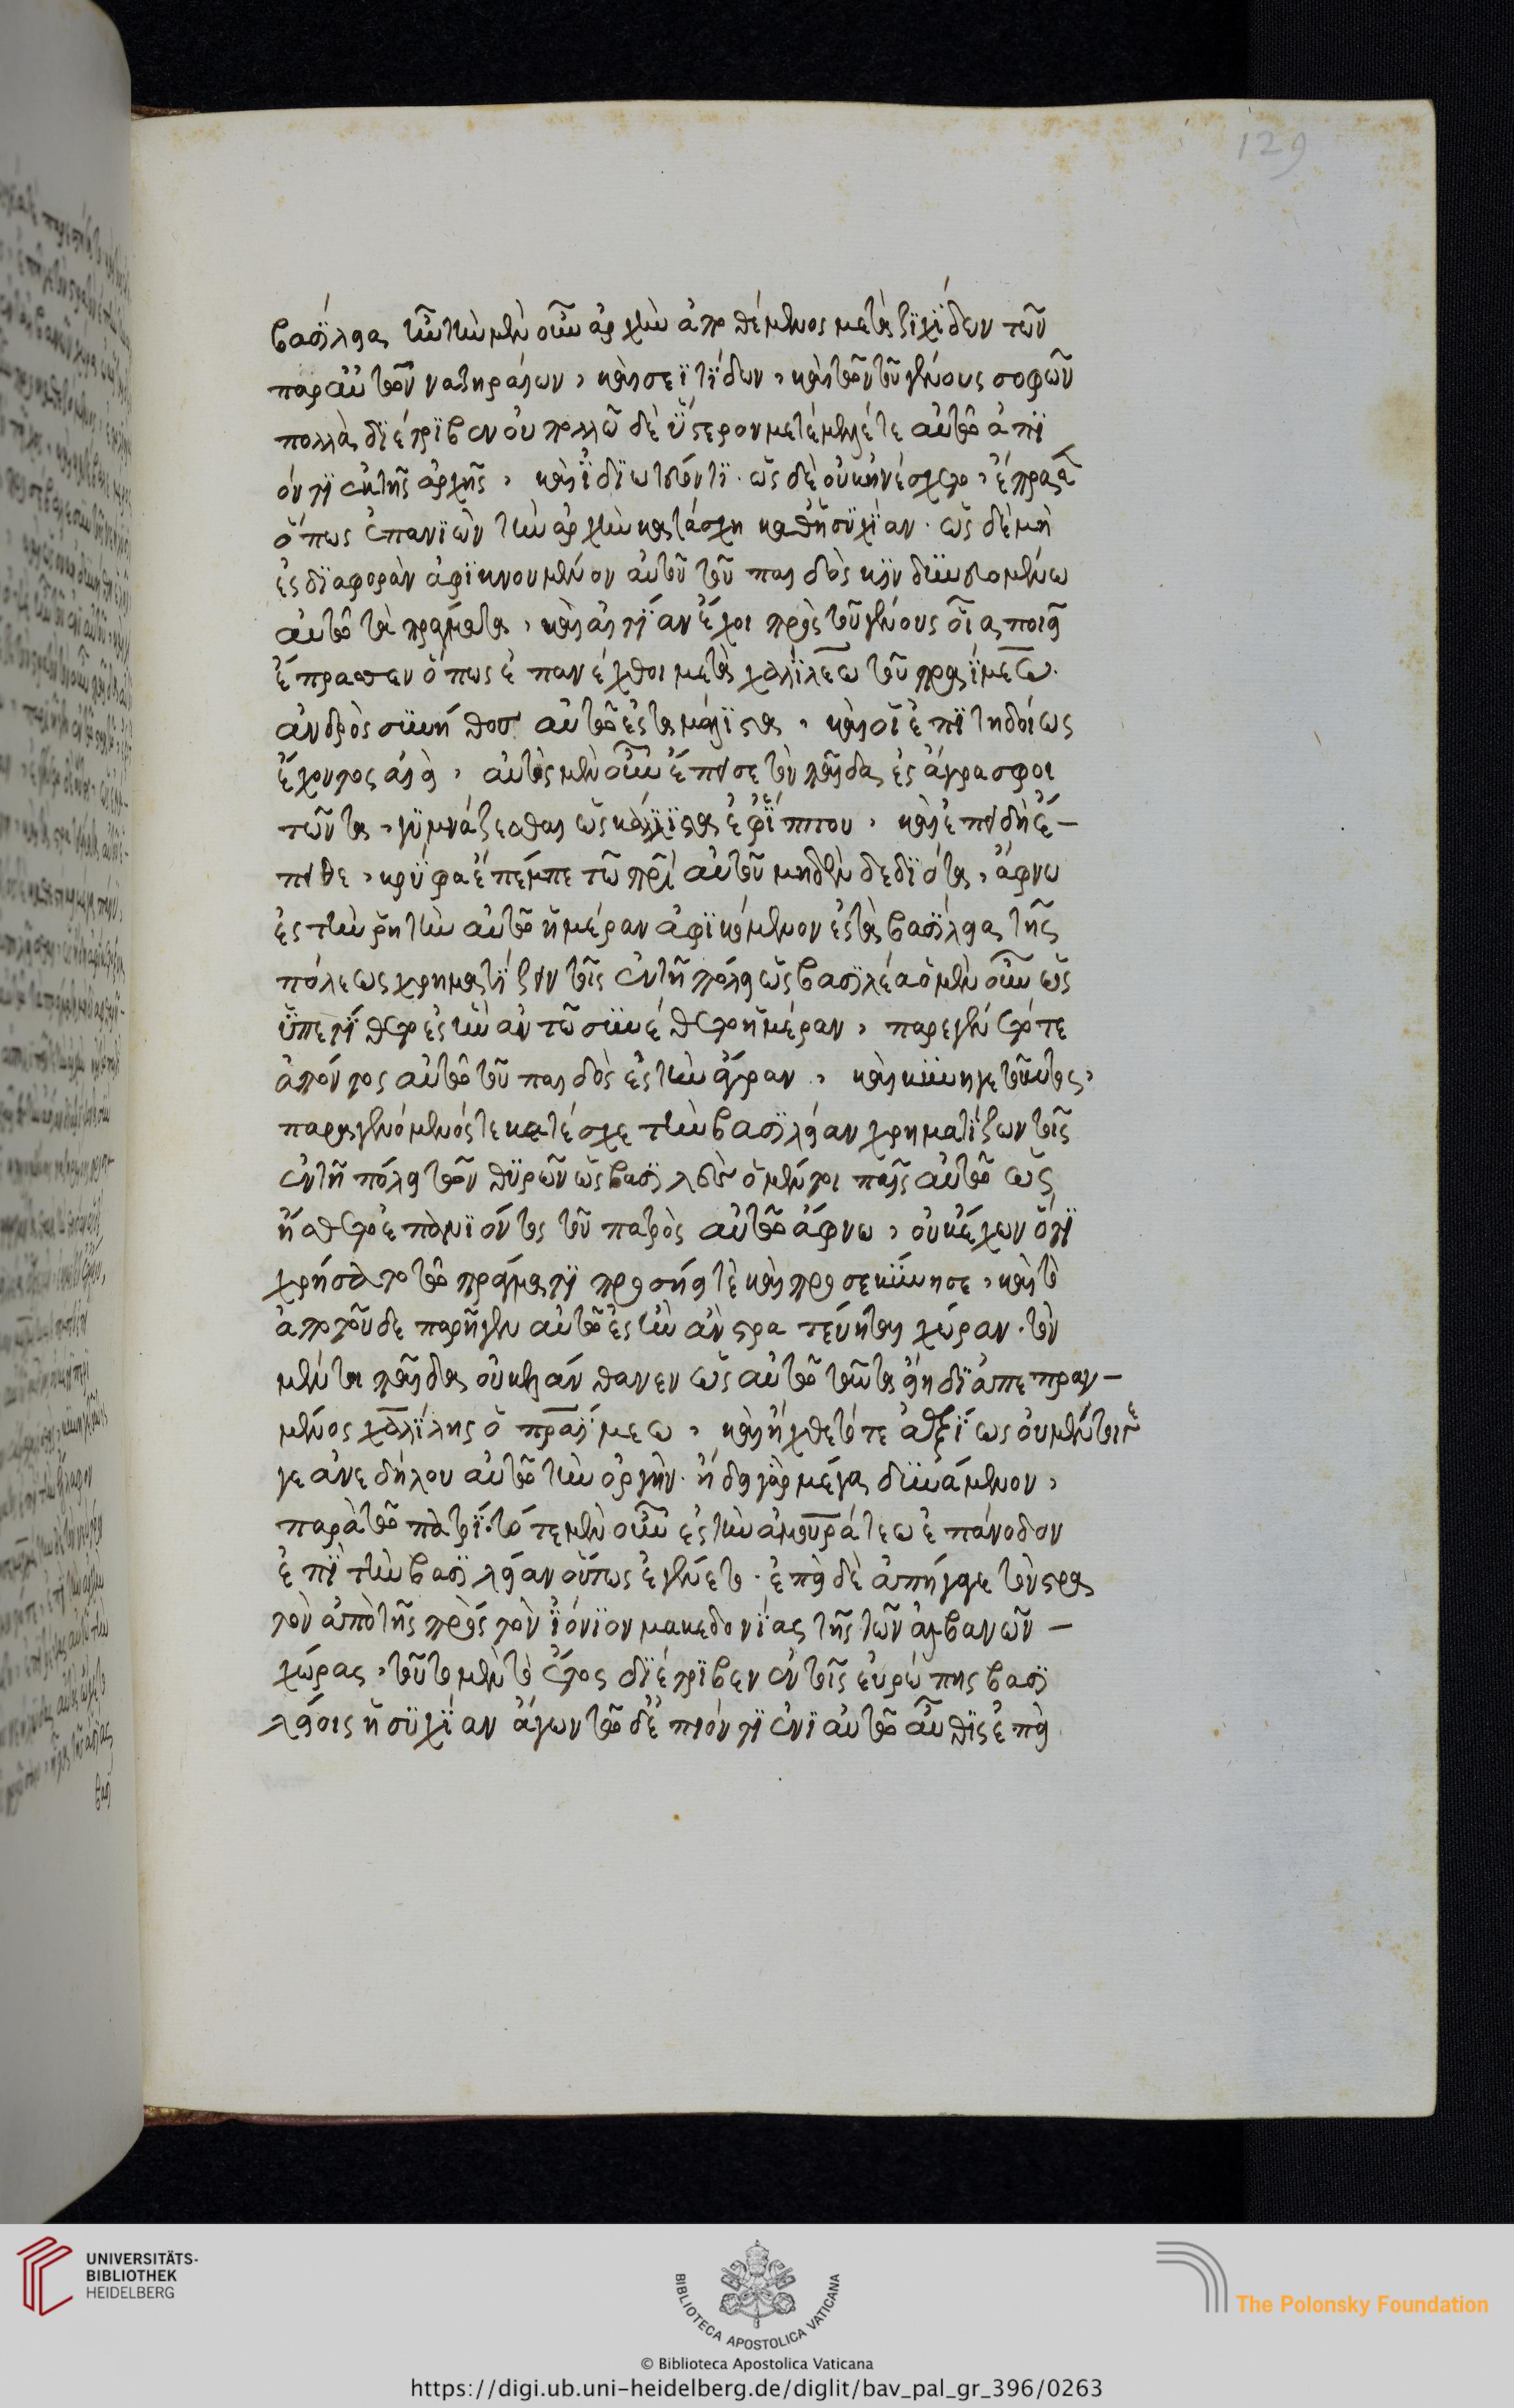 βασίλεια, τὴν μὲν οὖν ἀρχὴν ἀποθέμενος μετὰ ζιχίδων τῶν
παρ αὐτῶν ναζηραίων, καὶ σεϊτίδων, καὶ τῶν τοῦ γένους σοφῶν
πολλὰ διέτριβεν οὐ πολλῶ δὲ ὕστερον μετέμελέ τε αὐτῶ ἀπι
όντι ἐκ τῆς ἀρχῆς, καὶ ἰδιωτεύοντι. ὡς δὲ οὐκ ἠνέσχετο, ἔπραξε
ὅπως ἐπανιὼν τὴν ἀρχὴν κατάσχη καθ ἡσυχίαν. ὡς δὲ μὴ
ἐς διαφορὰν ἀφικνουμένου αὐτοῦ τοῦ παιδὸς κινδυνευομένω
αὐτῶ τὰ πράγματα, καὶ αἰτίαν ἔχοι πρὸς τοῦ γένους οἷα ποιεῖ
ἔπρασσεν ὅπως ἐπανέρχθοι μετὰ χαλίλεω τοῦ πραΐμεω.
ἀνδρὸς συνήθους αὐτῶ ἐς τὰ μάλιστα, καὶ οἱ ἐπιτηδείως
ἔχοντος ἀεὶ, αὐτὸς μὲν οὖν ἔπεισε τὸν παῖδα ἐς ἄγρας φοι
τῶντα, γυμνάζεσθαι ὡς κάλλιστα ἐφίππου, καὶ ἐπειδὴ ἔ-
πειθε, κρύφα ἔπεμπε τῶ πατρὶ αὐτοῦ μηδὲν δεδιότα, ἄφνω
ἐς τὴν ῥητὴν αὐτῶ ἡμέραν ἀφικόμενον ἐς τὰ βασίλεια τῆς
πόλεως χρηματίζειν τοῖς ἐν τῆ πόλει ὡς βασιλέα ὁ μὲν οὖν ὡς
ὑπετίθετο ἐς ἣν ἂν τῶ συνέθετο ἡμέραν, παρεγένετό τε
ἀπόντος αὐτῶ τοῦ παιδὸς ἐς τὴν ἄγραν, καὶ κυνηγετοῦντος,
παραγενόμενός τε κατέσχε τὴν βασιλείαν χρηματίζων τοῖς
ἐν τῆ πόλει τῶν θυρῶν ὡς βασιλεὺς ὁ μέντοι παῖς αὐτῶ ὡς
ἤσθετο ἐπανιόντος τοῦ πατρὸς αὐτῶ ἄφνω, οὐκ ἔχων ὅτι
χρήσαιτο τῶ πράγματι προσήει τὲ καὶ προσεκύνησε, καὶ τὸ
ἀπὸ τοῦδε παρῆγεν αὐτῶ ἐς ἣν ἂν στρατεύηται χώραν. τὸν
μέντοι παῖδα οὐκ ἐλάνθανεν ὡς αὐτῶ ταῦτα εἴη διαπεπραγ-
μένος χαλίλης ὁ πραΐμεω, καὶ ἤχθετό τε ἀλγεῖως οὐ μέντοι
γε ἀνεδήλου αὐτῶ τὴν ὀργὴν. ἤδει γὰρ μέγα δυνάμενον,
παρὰ τῶ πατρί. τότε μὲν οὖν ἐς τὴν ἀμουράτεω ἐπάνοδον
ἐπὶ τὴν βασιλείαν οὕτως ἐγένετο. ἐπεὶ δὲ ἀπήγαγε τὸν στρα
τὸν ἀπὸ τῆς πρὸς τὸν ἰόνιον μακεδονίας τῆς τῶν ἀλβανῶν -
χώρας, τοῦτο μὲν τὸ ἔτος διέτριβεν ἐν τοῖς εὐρώπης βασι
λείοις ἡσυχίαν ἄγων τῶ δ ἐπιόντι ἐνιαυτῶ αὖθις ἐπὶ
129
UNIVERSITÄTS-
BIBLIOTHEK
HEIDELBERG
BIBLIOTECA APOSTOLICA VATICANA
The Polonsky Foundation
© Biblioteca Apostolica Vaticana
https://digi.ub.uni-heidelberg.de/diglit/bav_pal_gr_396/0263